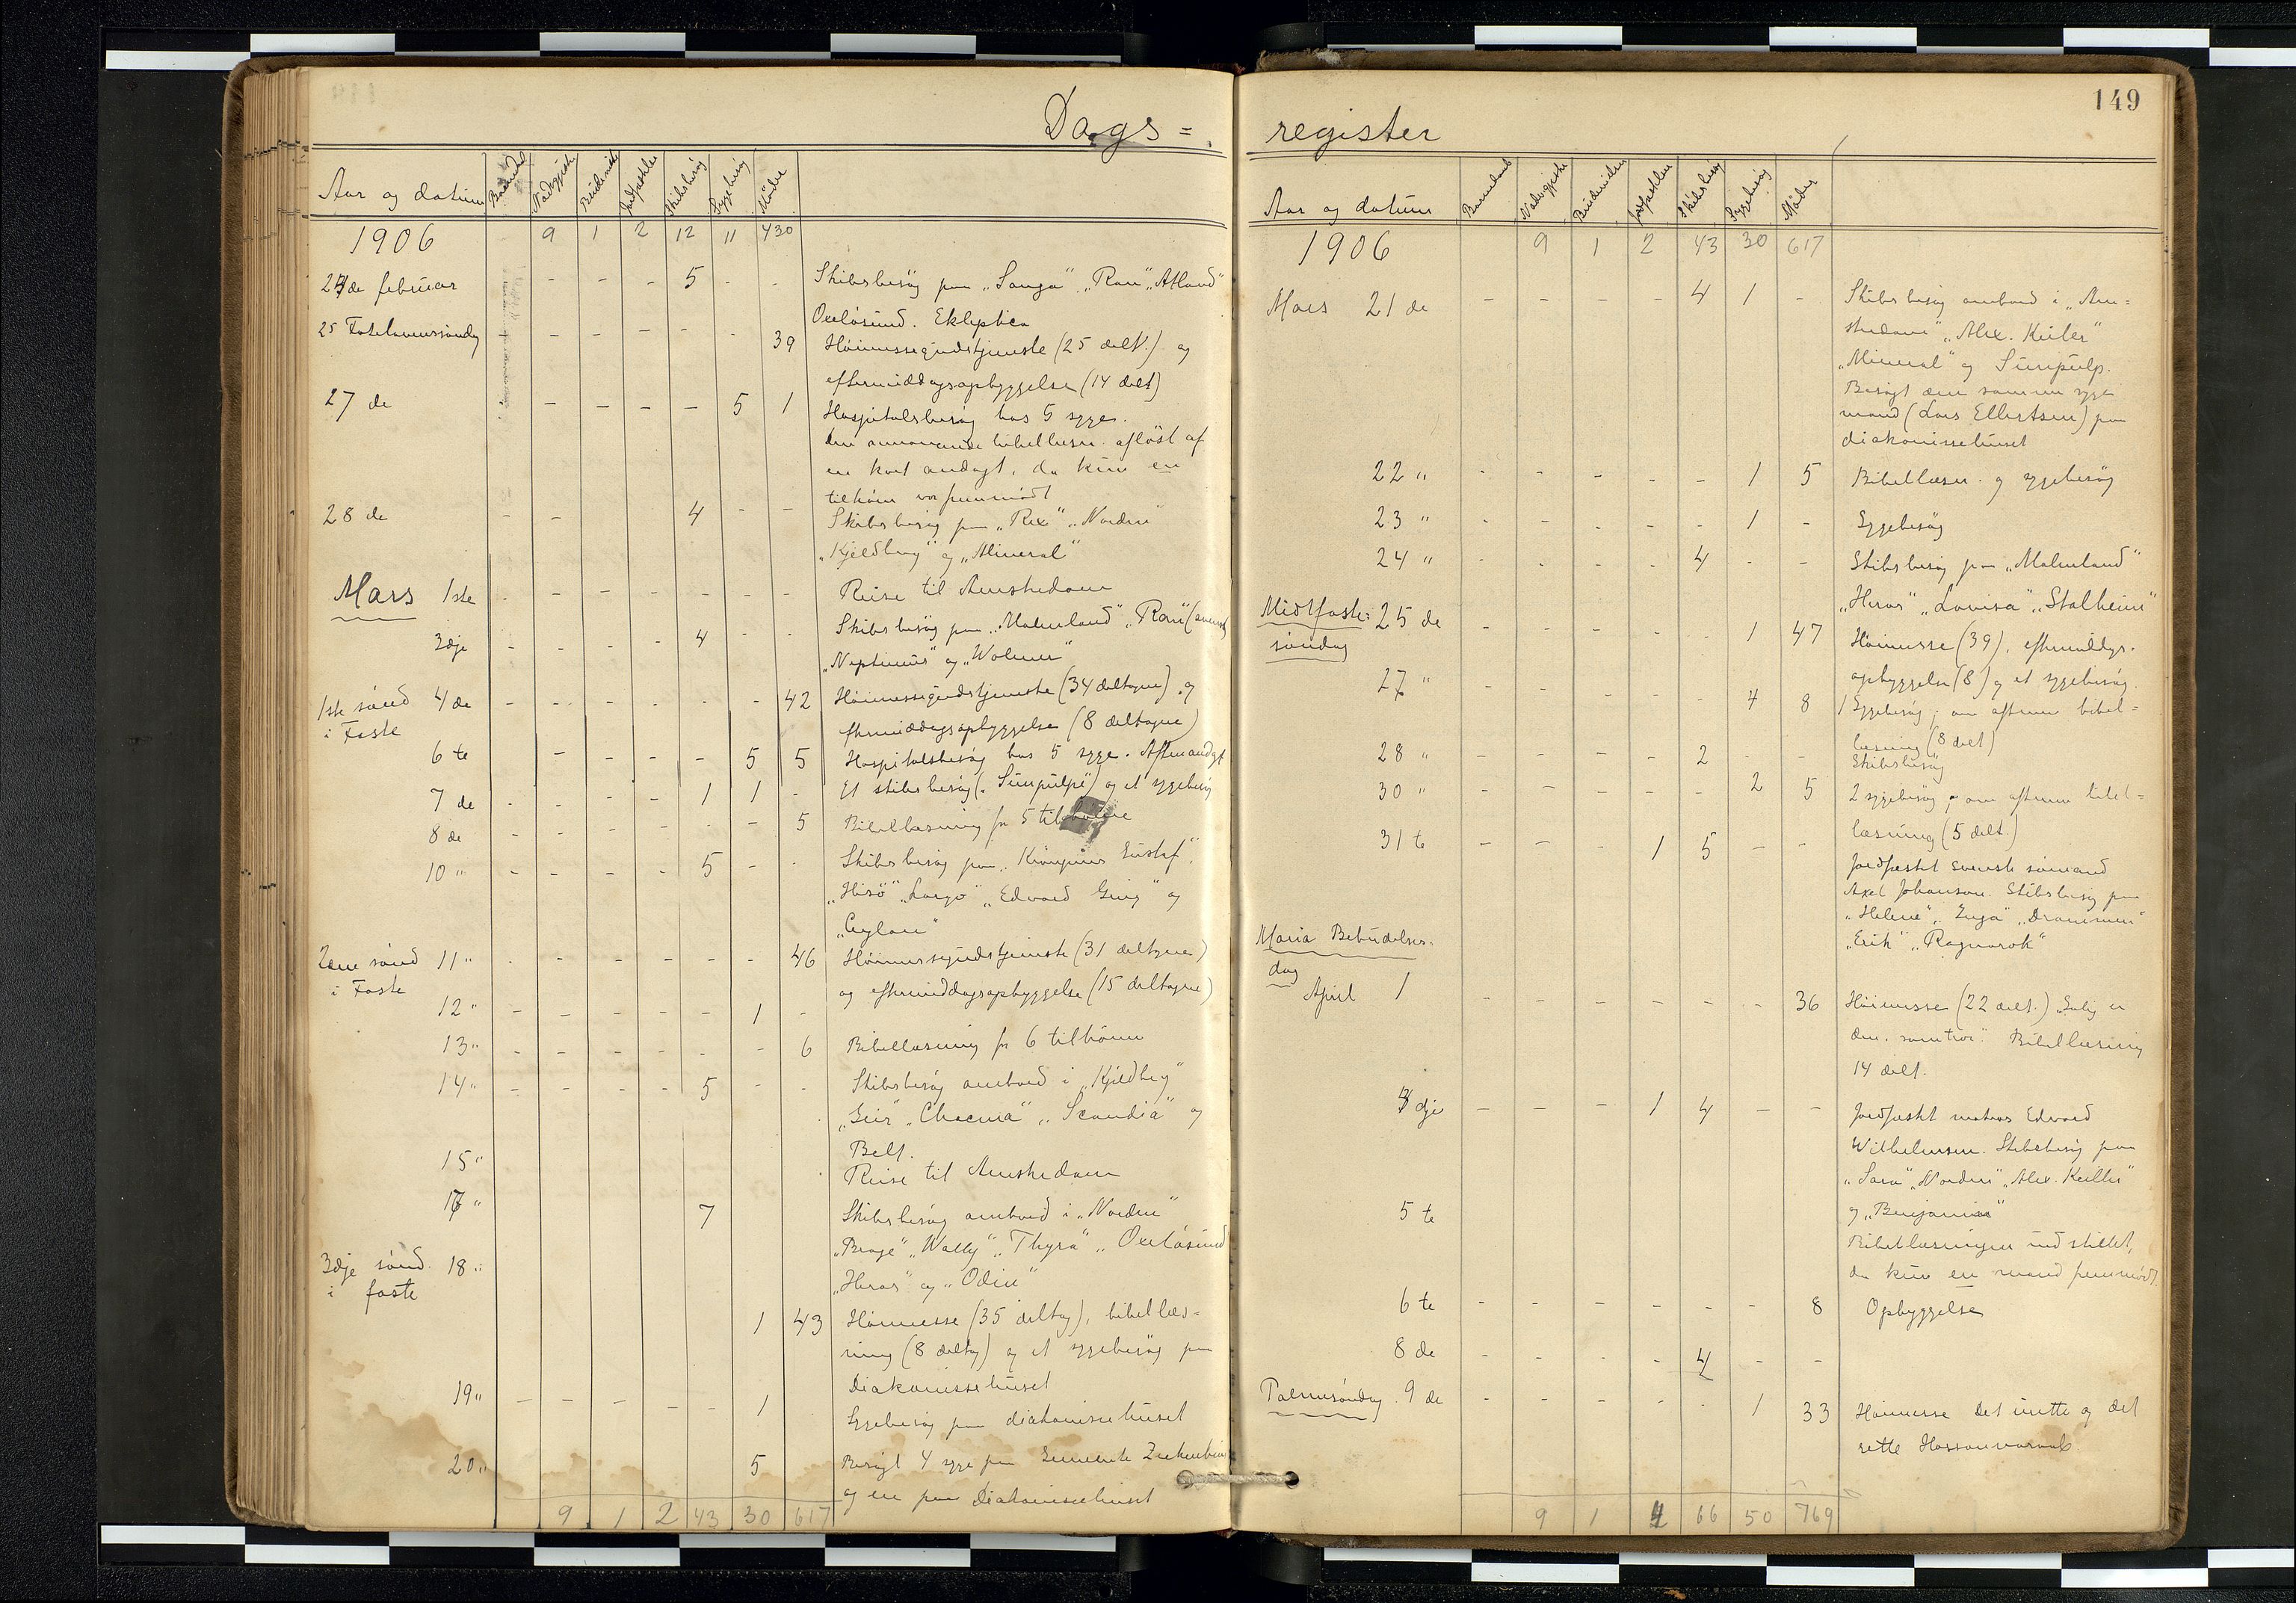 Dags=
Aar og datum Barnedaab Nadvgjæster Brudevielser Jordfæstelser Skibsbesøg Sygebesøg Møder
1906 9 1 2 12 11 430
24de februar - - - 5 - - Skibsbesøg paa „Sanga“ „Ran“ „Atland“
Oxelösund. Ekliptica
25 Fastelavnssøndag - - - - - - 39 Høimessegudstjeneste (25 delt.) og
eftermiddagsopbyggelse (14 delt)
27 de - - - - 5 1 Hospitalsbesøg hos 5 syge.
Den annonserede bibellæsn. afløst af
en kort andagt, da kun en
tilhører var fremmødt
28 de - - 4 - - Skibsbesøg paa „Rex“ „Norden“
„Kjeldberg“ og „Mineral“
Mars 1ste - - - - - - - Reise til Amsterdam
3dje - - - - 4 - - Skibsbesøg paa „Malmland“ „Ran“ (svensk)
„Neptunus“ og „Wolmer“
1ste sönd 4 de - - - - - - 42 Høimessegudstjeneste (34 deltagere) og
i Faste eftermiddagsopbyggelse (8 deltagere)
6 te - - - - 5 5 Hospitalsbesøg hos 5 syge. Aftenandagt
7 de - - - - 1 1 - Et skibsbesøg („Sunpulpe“) og et sygebesøg
8 de - - - - - - 5 Bibellæsning for 5 tilhørere
10 „ - - - - 5 - - Skibsbesøg paa „Kronprins Gustaf“,
„Hisö“ „Largo“ „Edvard Grieg“ og
„Ceylon“
2den sönd 11 „ - - - - - - 46 Høimessegudstjeneste (31 deltagere)
i Faste og eftermiddagsopbyggelse (15 deltagere)
12 „ - - - - - 1 -
13 „ - - - - - - 6 Bibellæsning for 6 tilhørere
14 „ - - - - 5 - - Skibsbesøg ombord i „Kjeldberg“
„Geir“ „Chacma“ „Scandia“ og
Belt.
15 „ Reise til Amsterdam
17 „ 7 Skibsbesøg ombord i „Norden“
„Brage“ „Wally“ „Thyra“ „Oxelösund
3dje sönd. 18 „ „Heros“ og „Odin“
i faste
1 43 Høimesse (35 deltag), bibellæs-
ning (8 deltag) og et sygebesøg paa
Diakonissehuset
19 „ - - - - - 1 Sygebesøg paa diakonissehuset
20 „ 5 Besøgt 4 syge paa Gemeente Ziekenhuis
og en paa Diakonissehuset
9 1 2 43 30 617
149
register
Aar og datum Barnedaab Nadvgjæster Brudevielser Jordfæstelser Skibsbesøg Sygebesøg Møder
1906 9 1 2 43 30 617
Mars 21 de - - - - 4 1 - Skibsbesøg ombord i „Am=
sterdam“ „Alex. Keiler“
„Mineral“ og Sunpulp.
Besøgt den samme syge
mand (Lars Ellertsen) paa
diakonissehuset
22 „ - - - - - 1 5 Bibellæsn. og sygebesøg
23 „ - - - - - 1 - Sygebesøg
24 „ - - - - 4 - - Skibsbesøg paa „Malmland“
„Heros“ „Lovisa“ „Stalheim“
Midtfaste= 25 de - - - - - 1 47 Høimesse (39), eftermiddgs.
søndag opbyggelse (8) og et sygebesøg.
27 „ - - - - - 4 8 Sygebesøg; om aftenen bibel=
læsning (8 delt)
28 „ - - - - 2 - - Skibsbesøg
30 „ - - - - - 2 5 2 sygebesøg; om aftenen bibel=
læsning (5 delt.)
31 te - - - 1 5 - - Jordfæstet svensk sömand
Axel Johanson. Skibsbesøg paa
„Helene“, „Inga“ „Drammen“
„Erik“ „Ragnarok“
Maria Bebudelses-
dag
April 1 - - - - - - 36 Høimesse (22 delt.) „Salig er
den, som tror“. Bibellæsning
14 delt.
3 dje - - - 1 4 - - Jordfæstet matros Edvard
Wilhelmsen. Skibsbesøg paa
„Sara“ „Norden“ „Alex. Keiller“
og „Benjamin“
5 te Bibellæsningen indstillet,
da kun en mand fremmødt.
6 te - - - - - - 8 Opbyggelse
8 de - - - - 4 - -
Palmesøndag. 9 de - - - - - 1 33 Høimesse Det urette og det
rette Hosiannaraab
9 1 4 66 50 769